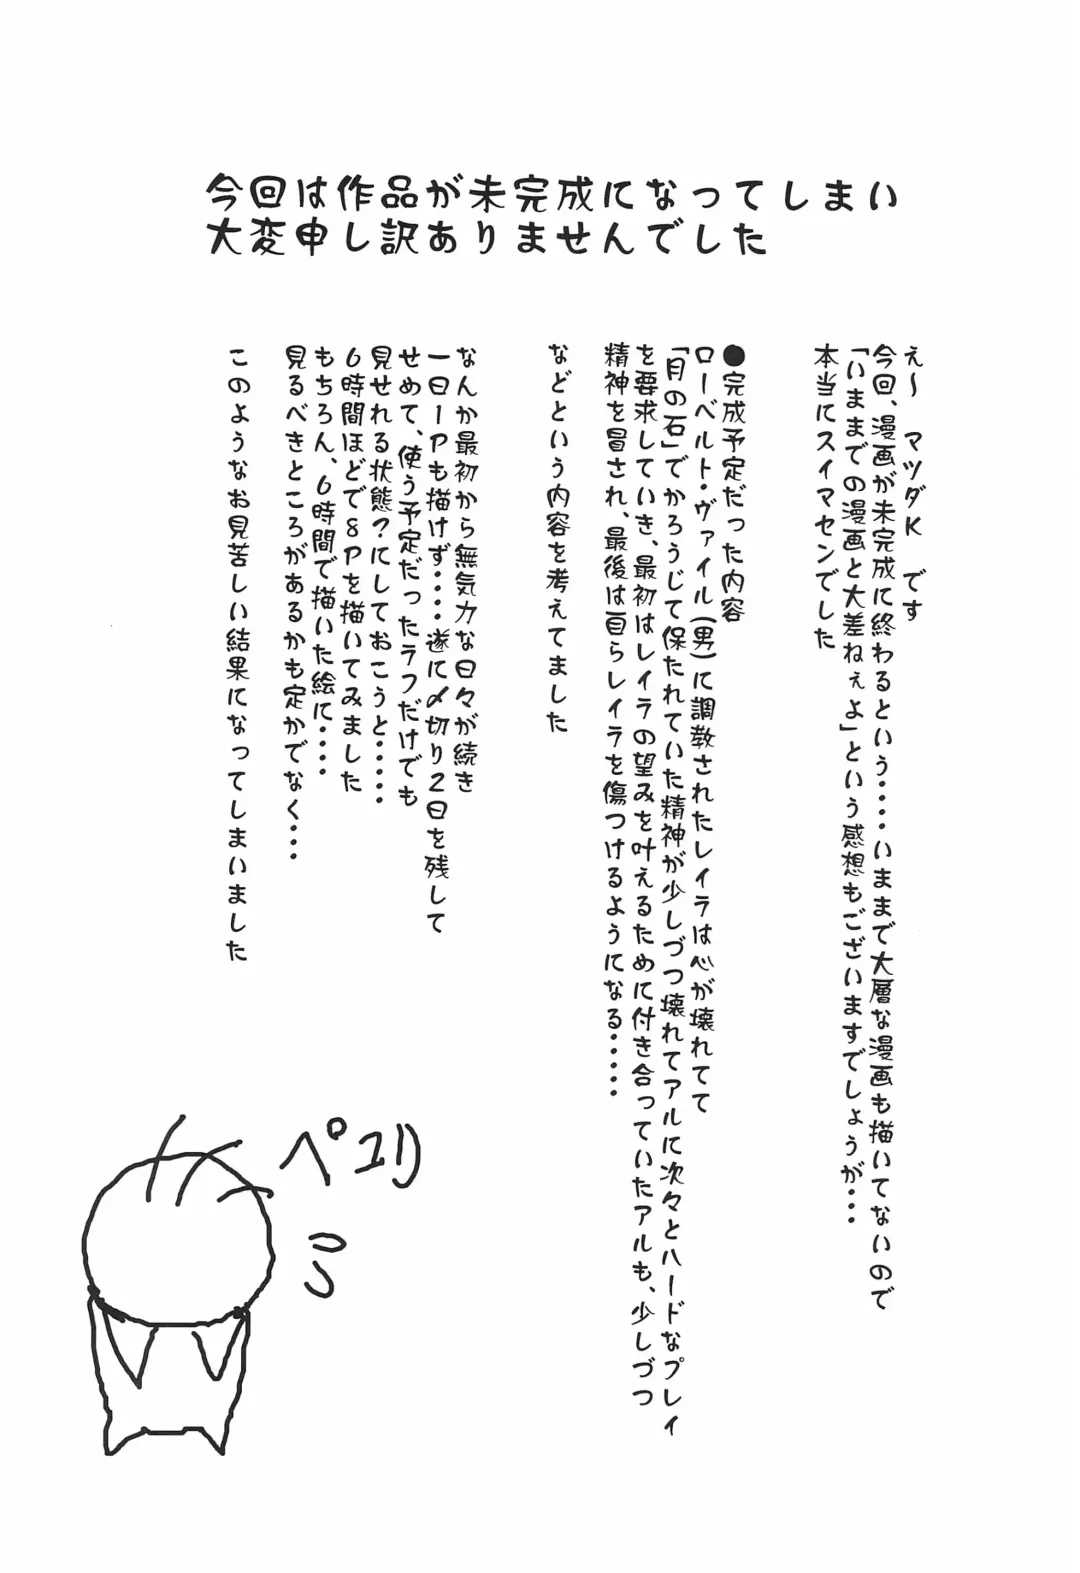 今回は作品が未完成になってしまい
大変申し訳ありませんでした
え～　マツダK　です
今回、漫画が未完成に終わるという・・・・いままで大層な漫画も描いてないので
「いままでの漫画と大差ねぇよ」という感想もございますでしょうが・・・
本当にスイマセンでした
●完成予定だった内容
ローベルト・ヴァイル(男)に調教されたレイラは心が壊れてて
「月の石」でかろうじて保たれていた精神が少しづつ壊れてアルに次々とハードなプレイ
を要求していき、最初はレイラの望みを叶えるために付き合っていたアルも、少しづつ
精神を冒され、最後は自らレイラを傷つけるようになる・・・・・
などという内容を考えてました
なんか最初から無気力な日々が続き
一日一Pも描けず・・・・遂に〆切り2日を残して
せめて、使う予定だったラフだけでも
見せれる状態?にしておこうと・・・・・
6時間ほどで8Pを描いてみました
もちろん、6時間で描いた絵に・・・・
見るべきところがあるかも定かでなく・・・・
このようなお見苦しい結果になってしまいました
ペコリ